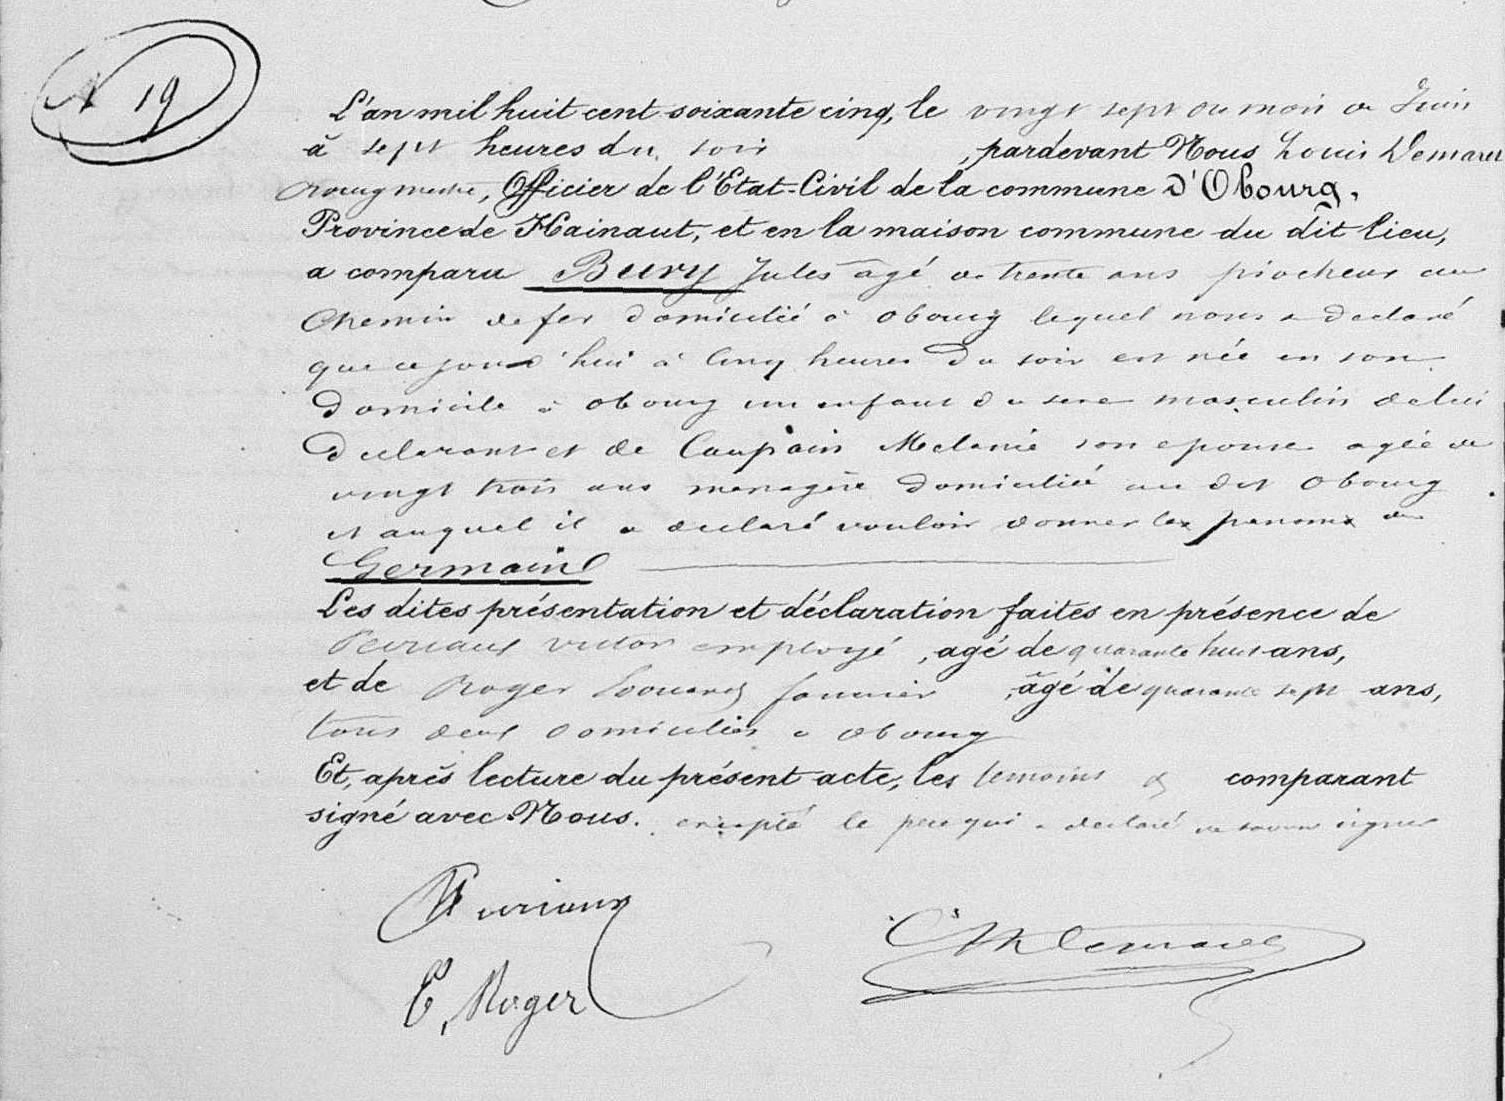 N 19
L'an mil huit cent soixante cinq, le vingt sept du mois de Juin
à sept heures du soir , pardevant Nous Louis Demaret
Bourgmestre, Officier de l'Etat-Civil de la commune D'Obourg,
Province de Hainaut, et en la maison commune du dit lieu,
a comparu Bury Jules âgé de trente ans piocheur au
Chemin de fer domicilié à Obourg lequel nous a declaré
que ce jourd'hui à Cinq heures du soir est née en son
Domicile à Obourg un enfant du sexe masculin de lui
Declarant et de Caupain Melanie son epouse agée de
vingt trois ans menagère domiciliée au dit Obourg
et auquel il a declaré vouloir donner les prenoms de
Germain
Les dites présentation et déclaration faites en présence de
Victor employé , agé de quarante huit ans,
et de Roger Edouard , âgé de quarante sept ans,
tous deux domiciliés à Obourg
Et, après lecture du présent acte, les temoins et comparant
signé avec Nous. excepté le pere qui a declaré ne savoir signer
E, Roger